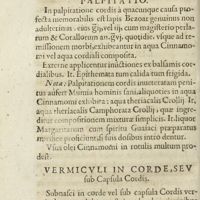 PALPITATIO.
In palpitatione cordis à quacunque causa profecta memorabilis est lapis Bezoar genuinus non
adulterinus. eius vel iij. cum magisterio perlarum
& Corallorum an. quotidie, vsque ad remissionem
morbi, exhibeantur in aqua Cinnamomi
vel aqua cordiali composita.
Externe applicentur inunctiones ex balsamis cordialibus.
It. Epithemata tum calida tum frigida.
Nota: Palpitationem cordis inueteratam penitus
aufert Mumia hominis sani, aliquoties in aqua
Cinnamomi exhibita: aqua theriacalis Crollij. It.
aqua theriacalis Camphorata Crollij: quæ ingreditur
compositionem mixturæ simplicis. It. liquor
Margaritarum cum spiritu Guaiaci præparatus
mediocri portione, si suis dosibus intrò detur.
Vsus olei Cinnamomi in rotulis multum prodest.
VERMICVLI IN CORDE, SEV
sub Capsula Cordis.
Subnasci in corde vel sub capsula Cordis